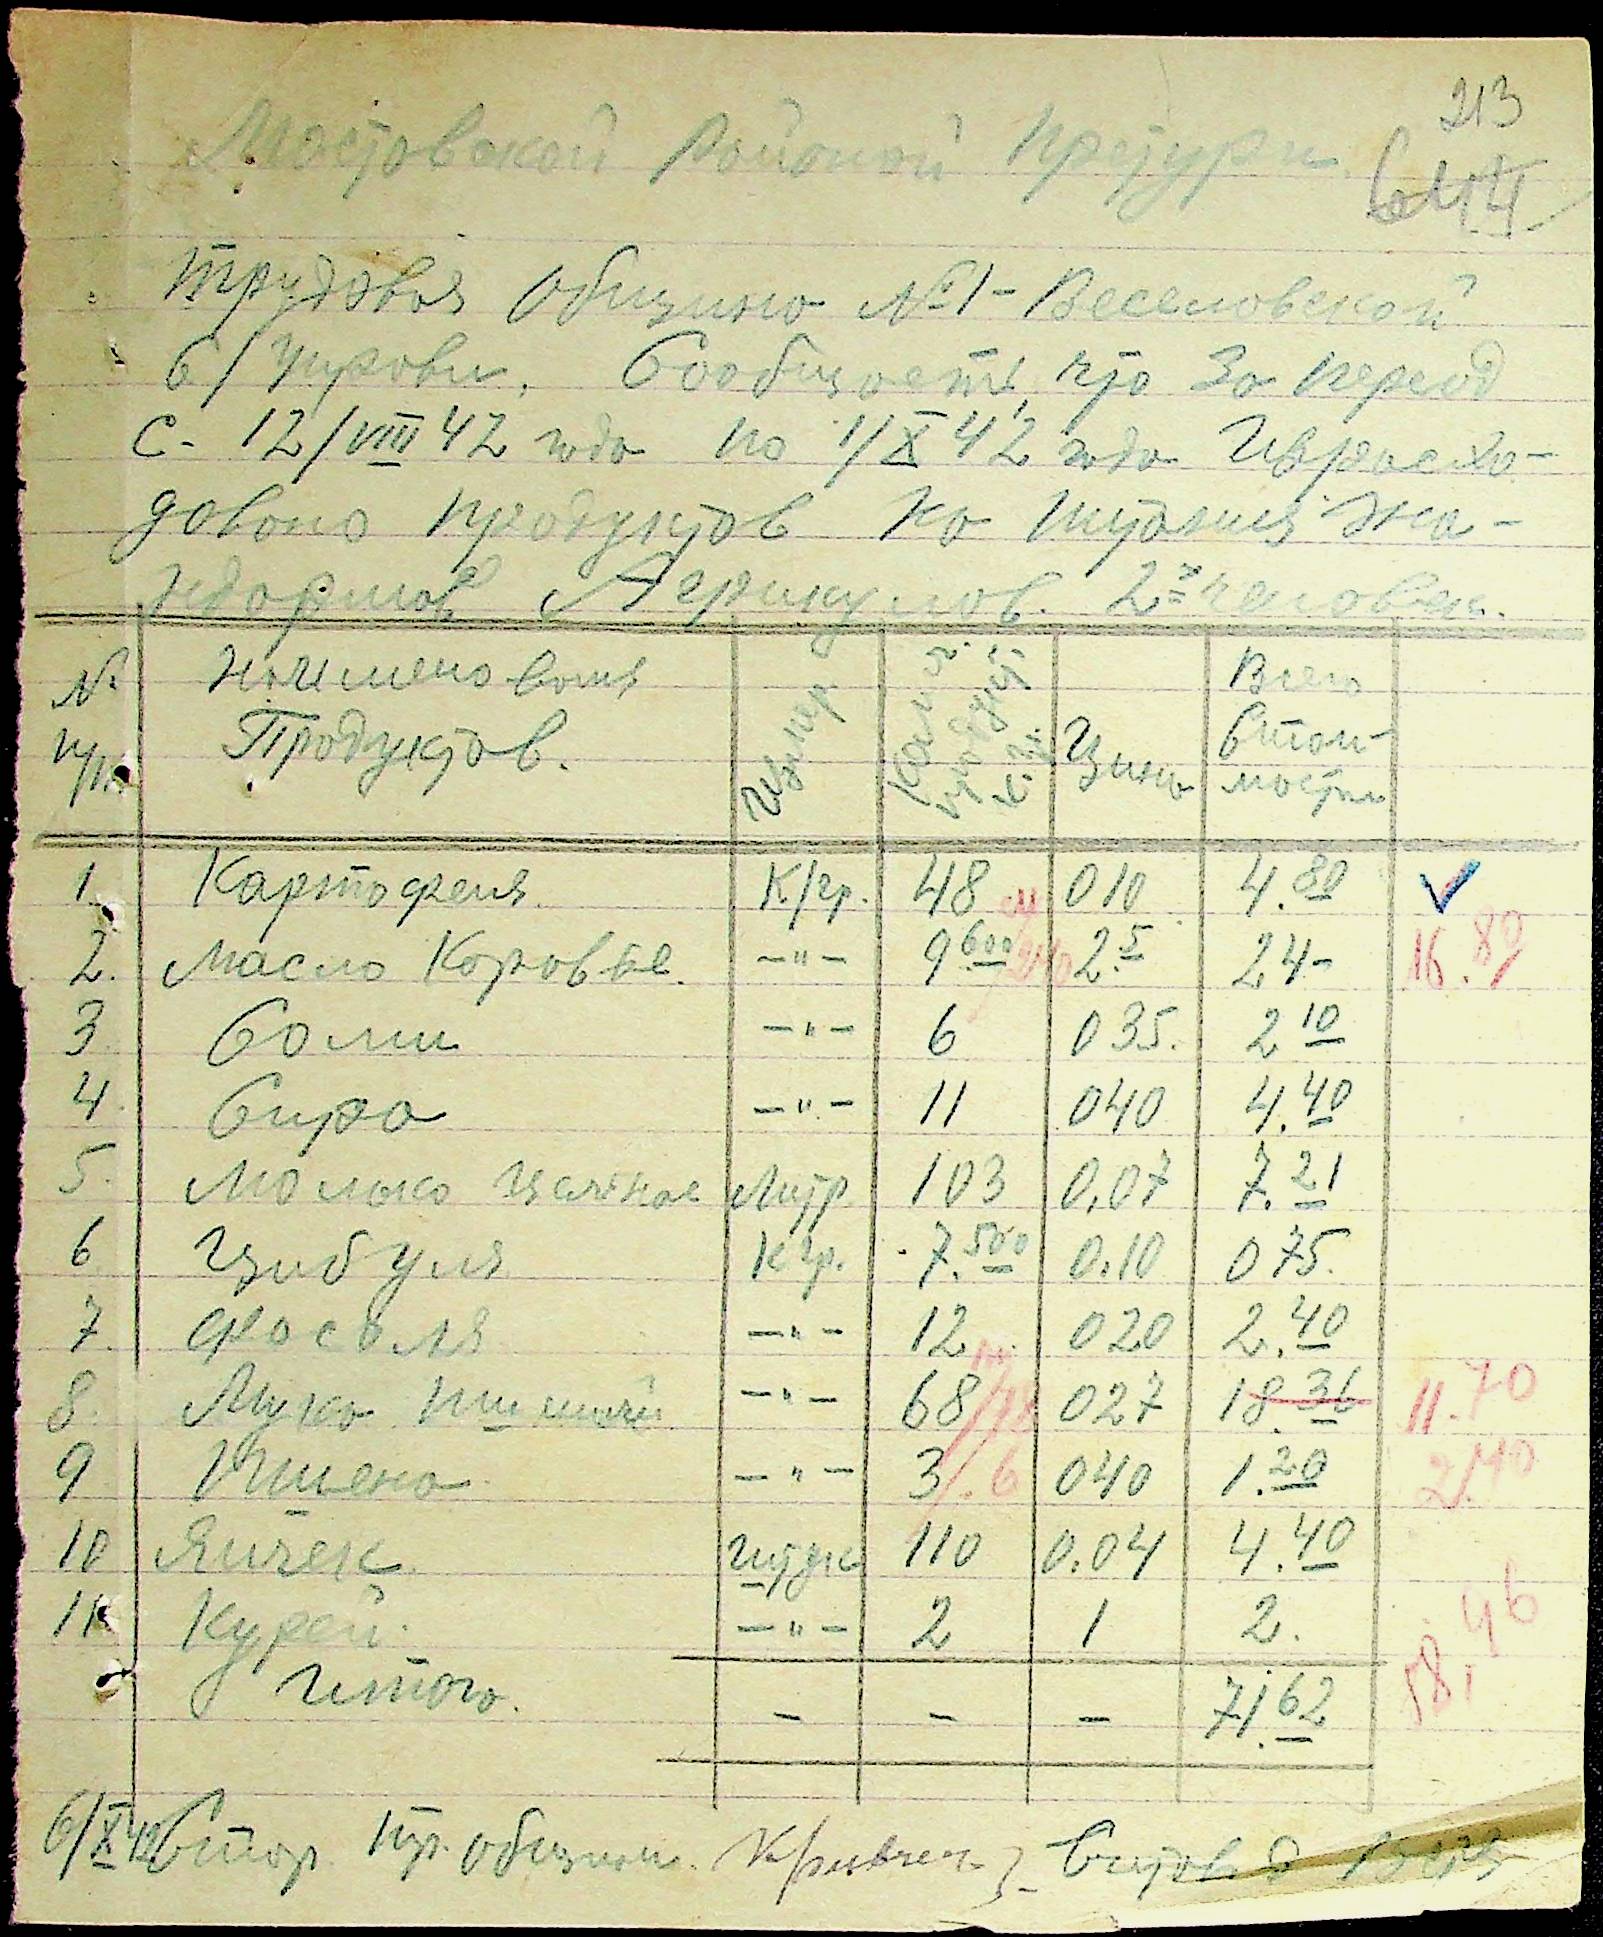 213
Мостовской Районой Претури
Трудовая Община №1 - Веселовской
С/Управи. Сообщает, что за период
с - 12/VIII 42 года по 1/X 42 года Израсхо-
довано продуктов на питания жа-
ндармов Агрикулов. 2х человек.
№ п/п Наименования Продуктов. Измер. Колич. продукт. Цина Всего стои-мости
1 Картофеля К/гр. 48 010 4.80 ✓
2. Масло Коровье. -"- 9.600 2.5 24- 16.80
3 Соли -"- 6 035. 2 10
4. Сира -"- 11 040 4.40
5. Молоко цельное Литр. 103 0,07 7.21
6 Цибуля Кгр. 7.500 0.10 0 75.
7 Фасоля -"- 12 020 2.40
8. Муко пшинич. -"- 68 027 18.36 11.70
9 Пшено -"- 3 6 040 1.20 2.40
10 Яичек Штук 110 0.04 4.40
11 Курей -"- 2 1 2.
58,46
Итого. - - - 71.62
6/X 42 Стар. Тр. общини.